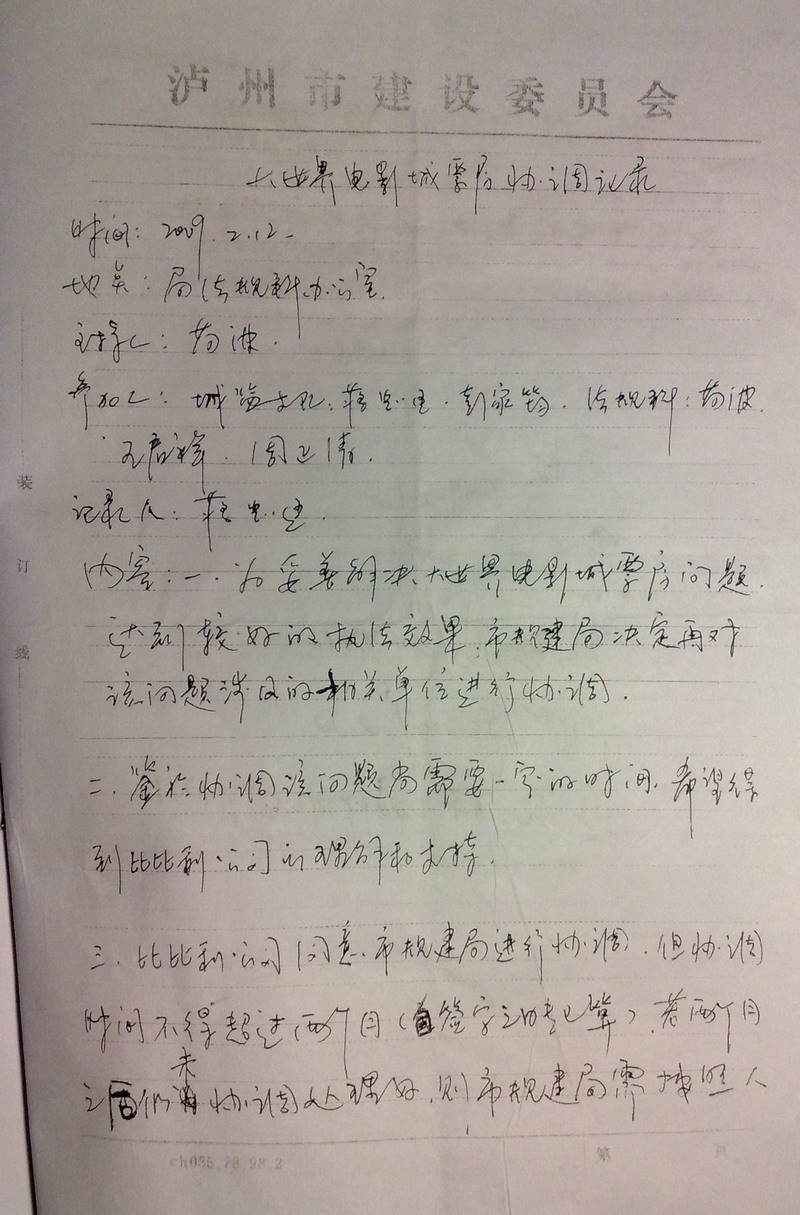 泸州市建设委员会
大世界电影城票房协调记录
时间：2009.2.12.
地点：局法规科办公室.
主持人：
参加人：城 法规科：
记录人：
内容：一.为妥善解决大世界电影城票房问题.
达到较好的执法效果.市规建局决定再对
该问题涉及的相关单位进行协调.
二.鉴于协调该问题尚需要一定的时间.希望得
到比比利公司的理解和支持.
三.比比利公司同意市规建局进行协调.但协调
时间不得超过两个月（自签字之时起算）.若两个月
之后仍未协调处理好.则市规建局需按照人
装
订
线
ch035.78.98.2
第 页